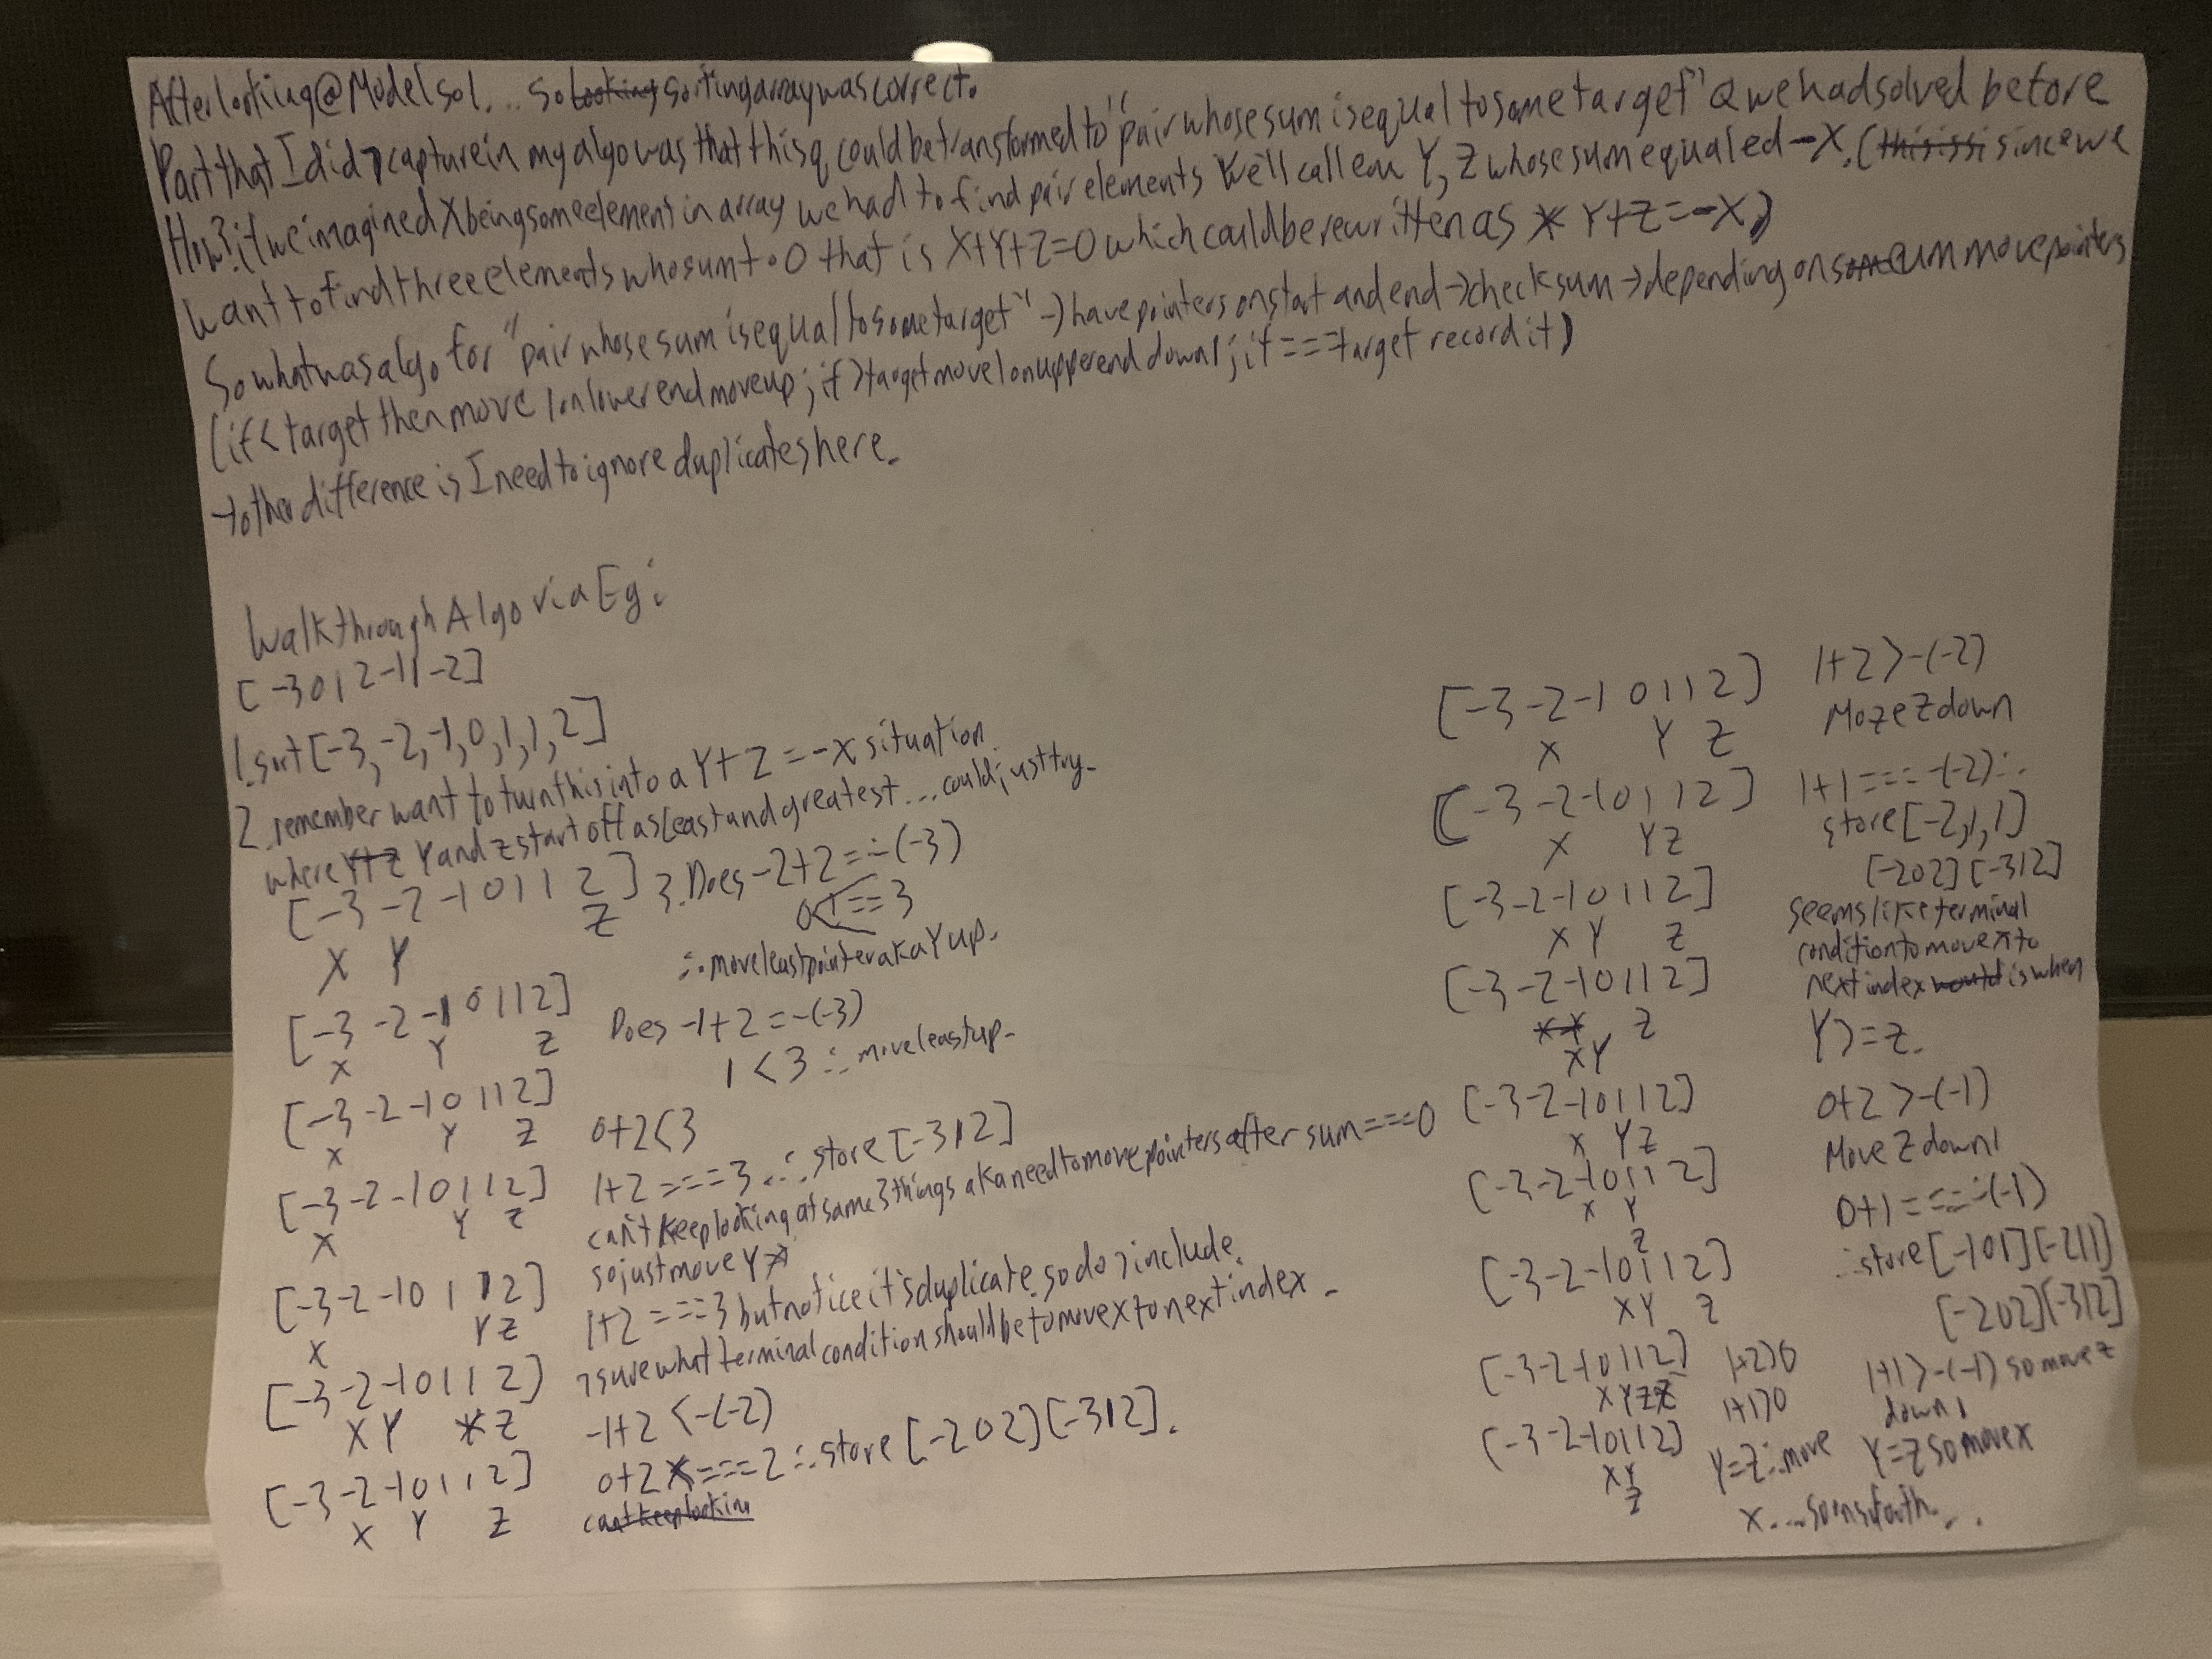 After looking @ Model sol... So looking sorting array was correct.
Part that I did ¬ capture in my algo was that this q could be transformed to "pair whose sum is equal to some target" Q we had solved before
How? if we imagined X being some element in array we had to find pair elements We'll call em Y, Z whose sum equaled -X. (this is si since we
want to find three elements who sum to 0 that is X+Y+Z=0 which could be rewritten as Y+Z=-X)
So what was algo for "pair whose sum is equal to some target" → have pointers on start and end → check sum → depending on some sum move pointers
(if < target then move 1 on lower end move up; if > target move 1 on upper end down 1; if === target record it)
→ other difference is I need to ignore duplicates here.
Walkthrough Algo via Eg:
[-3 0 1 2 -1 1 -2]
1. sort [-3, -2, -1, 0, 1, 1, 2]
2. remember want to turn this into a Y+Z = -X situation
where Y+Z Y and Z start off as least and greatest... could just try.
[-3 -2 -1 0 1 1 2] 3. Does -2+2 == -(-3)
X Y Z
0 == 3
∴ move least pointer aka Y up.
[-3 -2 -1 0 1 1 2] Does -1+2 = -(-3)
X Y Z 1 < 3 ∴ move least up.
[-3 -2 -1 0 1 1 2] 0+2<3
X Y Z
[-3 -2 -1 0 1 1 2] 1+2 === 3 ∴ store [-3 1 2]
X Y Z can't keep looking at same 3 things aka need to move pointers after sum === 0
so just move Y
[-3 -2 -1 0 1 1 2] 1+2 === 3 but notice it's duplicate so do ¬ include.
X Y Z ¬ sure what terminal condition should be to move x to next index.
[-3 -2 -1 0 1 1 2] -1+2 < -(-2)
X Y Z
[-3 -2 -1 0 1 1 2] 0+2 === 2 ∴ store [-2 0 2] [-3 1 2].
X Y Z can't keep lookin
[-3 -2 -1 0 1 1 2] 1+2 > -(-2)
X Y Z Move Z down
[-3 -2 -1 0 1 1 2] 1+1 === -(-2) ∴
X Y Z store [-2,1,1]
[-2 0 2] [-3 1 2]
[-3 -2 -1 0 1 1 2] seems like terminal
X Y Z condition to move x to
[-3 -2 -1 0 1 1 2] next index would is when
X Y Z
X Y Y >= Z.
[-3 -2 -1 0 1 1 2] 0+2 > -(-1)
X Y Z Move Z down 1
[-3 -2 -1 0 1 1 2] 0+1 === -(-1)
X Y
Z ∴ store [-1 0 1] [-2 1 1]
[-3 -2 -1 0 1 1 2] [-2 0 2] [-3 1 2]
X Y Z
[-3 -2 -1 0 1 1 2] 1+2>0 1+1 > -(-1) so move z
X Y Z Z 1+1>0 down 1
[-3 -2 -1 0 1 1 2] Y=Z ∴ move Y=Z so move x
X Y
Z X... so on so forth...